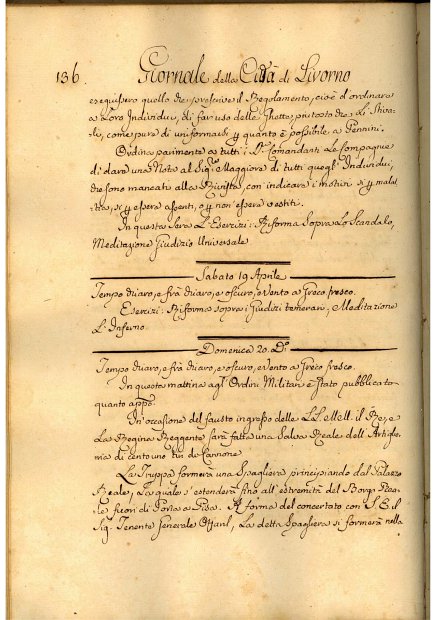 136.
Giornale della Città di Livorno
eseguissero quello che prescrive il Regolamento, cioè d'ordinare
a Loro Individui, di far uso delle Ghette, piuttosto che Li Stiva-
li, come pure di uniformarsi p quanto è possibile a Pennini.
Ordina parimente a tutti i SS.ri Comandanti Le Compagnie
di dare una Nota al Sig.re Maggiore di tutti quegl' Individui,
che sono mancati alla Rivista, con indicare i motivi, se p mala-
tia, se p essere assenti, o p non essere vestiti.
In questa Sera L'Esercizi: Riforma Sopra Lo Scandalo,
Meditazione Giudizio Universale
Sabato 19 Aprile
Tempo chiaro, e frà chiaro, e oscuro, e Vento a Greco fresco.
Esercizi: Riforma sopra i Giudizi temerari, Meditazione
L'Inferno
Domenica 20. D.o
Tempo chiaro, e frà chiaro, e oscuro, e Vento a Greco fresco.
In questa mattina agl' Ordini Militari è stato pubblicato
quanto app.o
In occasione del fausto ingresso delle LL. MM. il Re, e
La Regina Reggente sarà fatta una Salva Reale dell' Artiglie-
ria di centouno tiri di Cannone
La Truppa formerà una Spagliera principiando dal Palazzo
Reale, La quale s'estenderà fino all' estremità del Borgo Rea-
le fuori di Porta a Pisa. A forma del concertato con S. E. il
Sig. Tenente Generale La detta Spagliera si formerà nella